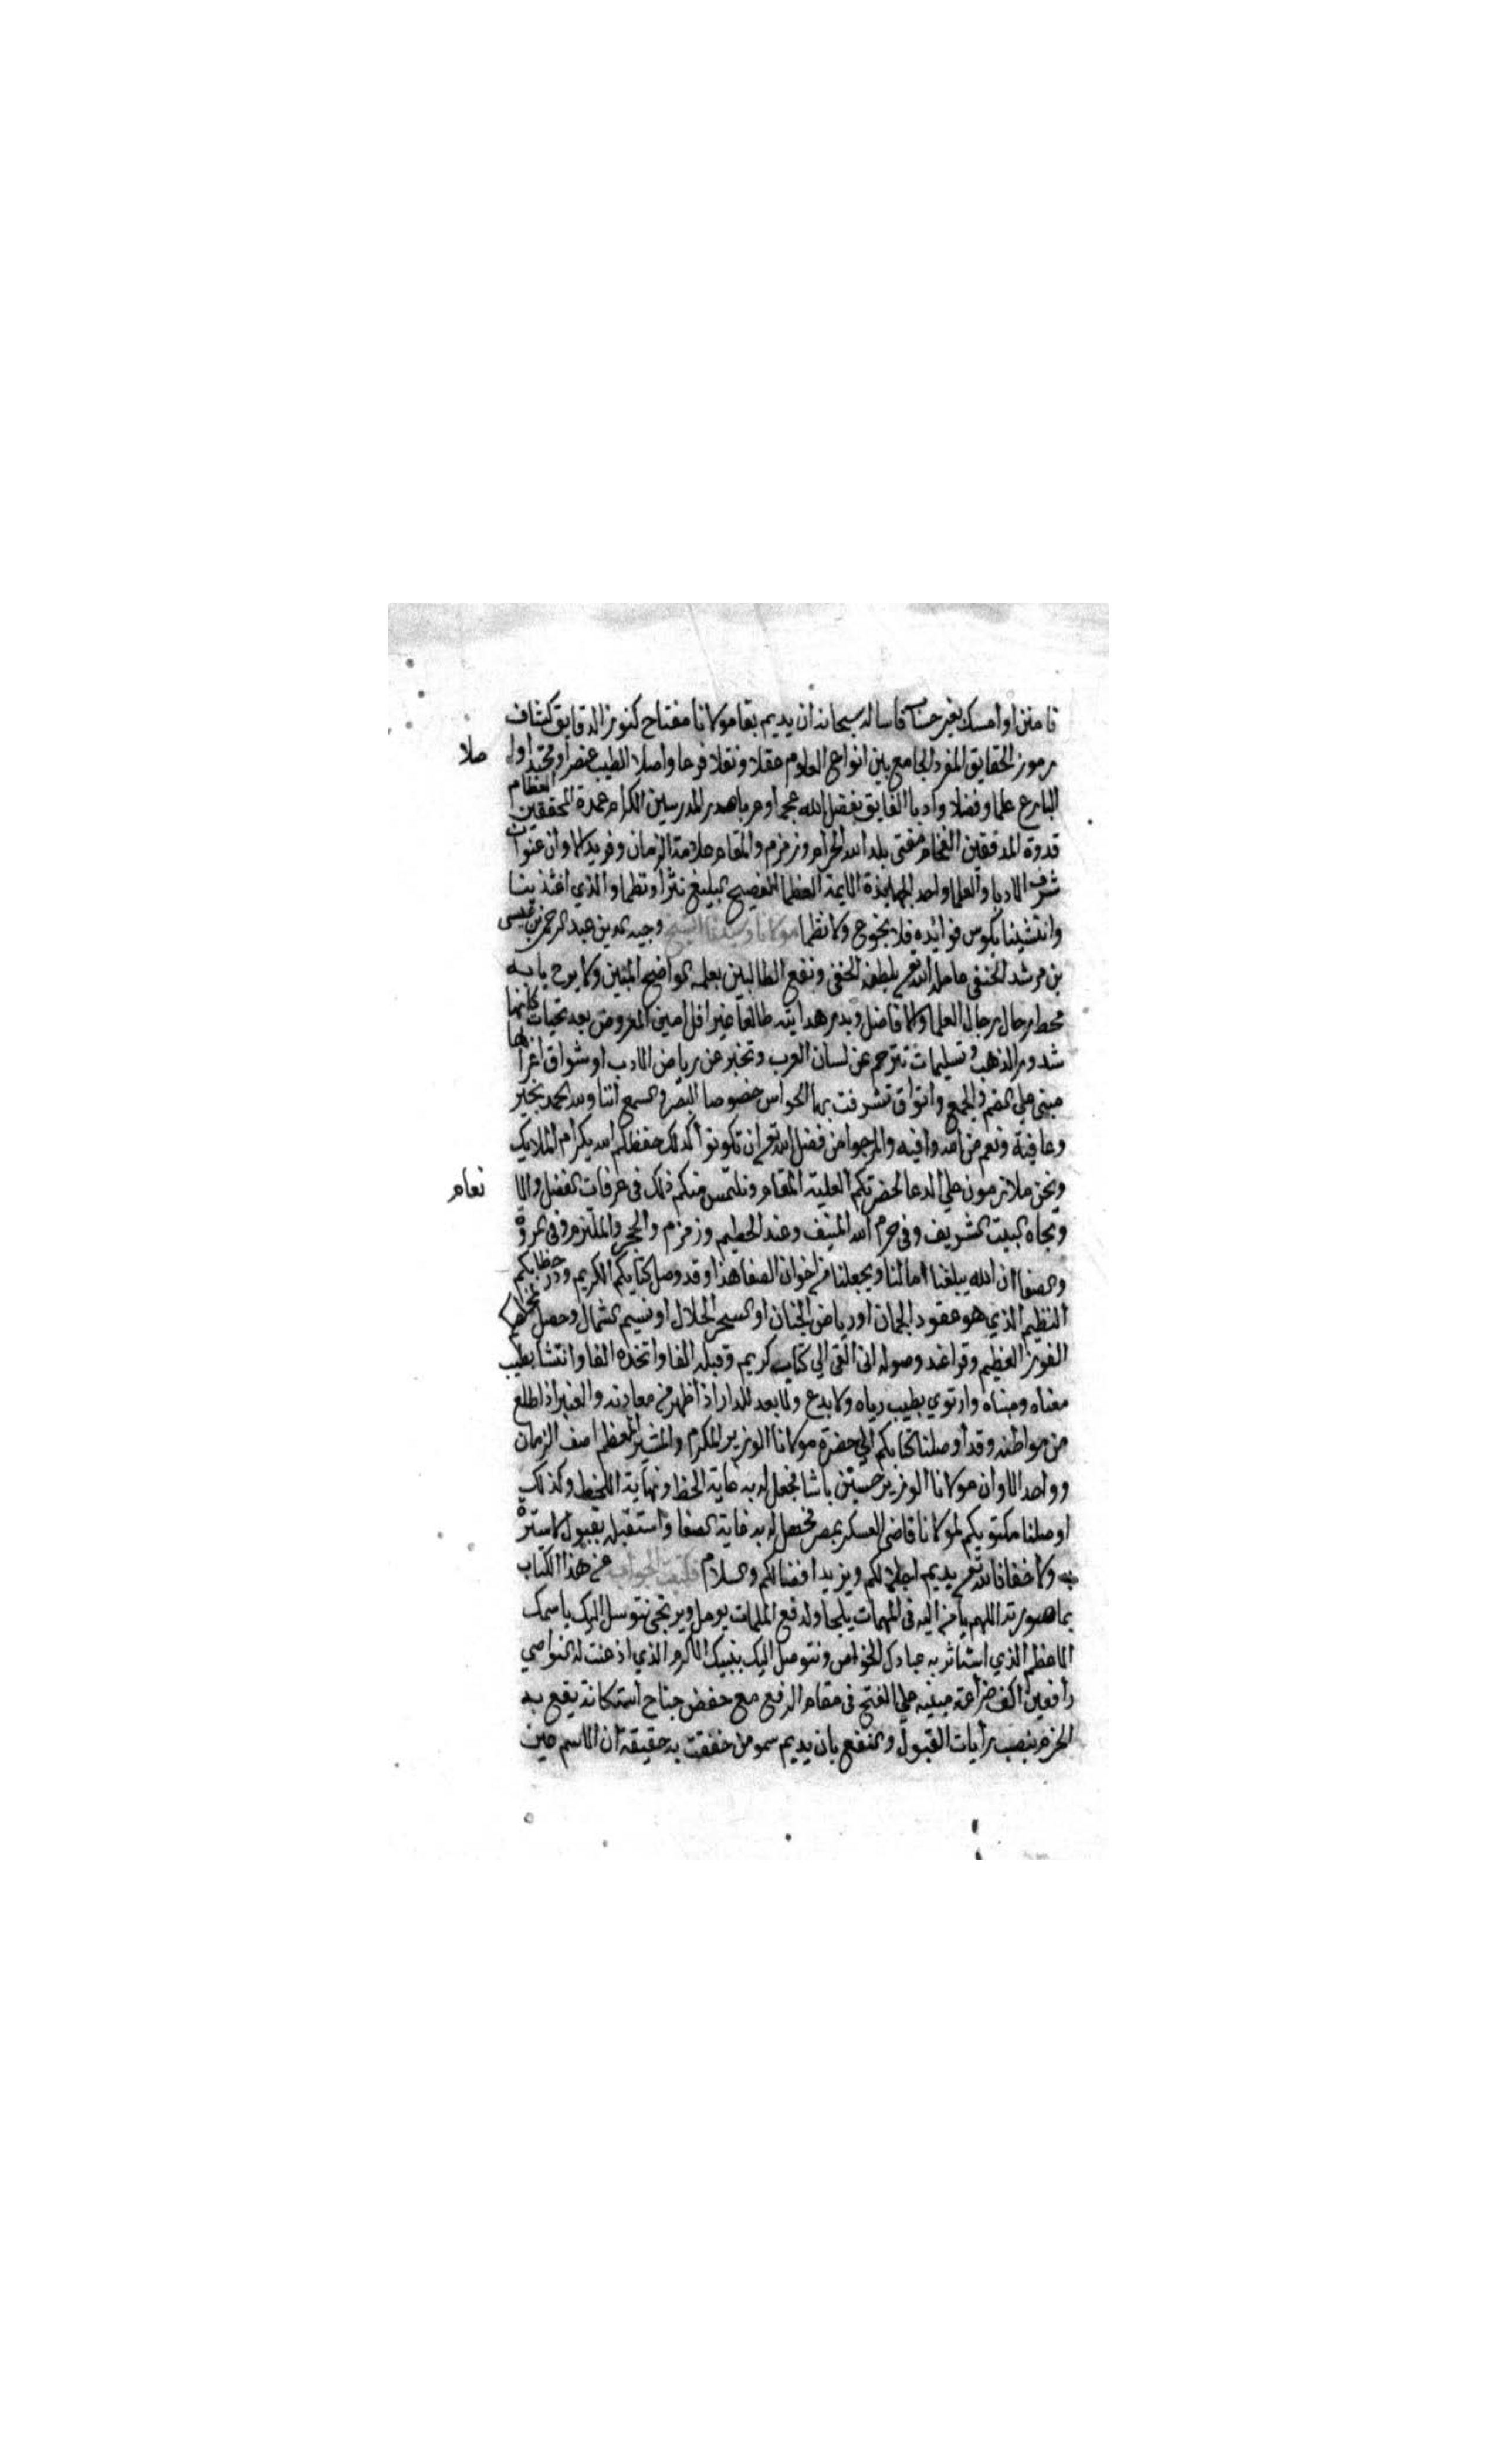 فامنن او امسك بغير حساب فاساله سبحانه ان يديم بقا مولانا مفتاح كنوز الدقايق كشاف
رموز الحقايق المفرد الجامع بين انواع العلوم عقلا ونقلا فرعا واصلا الطيب عنصرا ومحتدا
صلا
البارع علما وفضلا وادبا الفايق بفضل الله عجما وعربا صدر المدرسين الكرام عمدة المحققين العظام
قدوة المدققين الفخام مفتي بلد الله الحرام وزمزم والمقام علامة الزمان وفريد الاوان عنوان
شرف الادبا والعلما واحد الجهابذة الايمة العظما الفصيح البليغ نثرا ونظما والذي اغتذينا
وانتشينا بكوس فوايده فلا نجوع ولا نظما مولانا وسيدنا الشيخ وجيه الدين عبد الرحمن بن عيسى
بن مرشد الحنفي عامله الله تع بلطفه الخفي ونفع الطالبين بعلمه الواضح المبين ولا برح بابه
محط رحال رجال العلما والافاضل وبدر هدايته طالعا غير افل امين المعروض بعد تحيات كانها
شدور الذهب وتسليمات تترجم عن لسان العرب وتخبر عن رياض الادب او شواق اغرابها
مبني علي الضم والجمع واتواق تشرفت بها الحواس خصوصا البصر والسمع اننا ولله الحمد بخير
وعافية ونعم من الله وافيه والمرجوا من فضل الله تع ان تكونوا كذلك حفظكم الله بكرام الملايك
ونحن ملازمون علي الدعا لحضرتكم العلية المقام ونلتمس منكم ذلك في عرفات الفضل والا
نعام
وتجاه البيت الشريف وفي حرم الله المنيف وعند الحطيم وزمزم والحجر والملتزم وفي المروة
والصفا ان الله يبلغنا امالنا ويجعلنا من اخوان الصفا هذا وقد وصل كتابكم الكريم ودر خطابكم
النظيم الذي هو عقود الجمان او رياض الجنان او السحر الحلال او نسيم الشمال وحصل
الفوز العظيم وقرا عند وصوله اني القي الي كتاب كريم وقبله الفا واتخذه الفا وانتشا بطيب
معناه ومبناه وارتوي بطيب رياه ولا بدع ولا بعد للدر اذا ظهر من معادنه والعنبر اذا طلع
من مواطنه وقد اوصلنا كتابكم الي حضرة مولانا الوزير المكرم والمشير المعظم اصف الزمان
وواحد الاوان مولانا الوزير حسين باشا فجعل له به غاية الحظ ونهاية اللحظ وكذلك
اوصلنا مكتوبكم لمولانا قاضي العسكر بمصر فحصل له به غاية الصفا واستقبله بقبول لا سترة
به ولا خفا فالله تع يديم اجلالكم ويزيد افضالكم والسلام فكتبت الجواب عن هذا الكتاب
بما صورته اللهم يا من اليه في المهمات يلجا ولدفع الملمات يومل ويرتجي نتوسل اليك باسمك
الاعظم الذي استاثر به عبادك الخواص ونتوصل اليك بنبيك الاكرم الذي اذعنت له النواصي
رافعين اكف ضراعة مبنيه علي الفتح في مقام الرفع مع خفض جناح استكانة يقع به
الجزم بنصب رايات القبول والنفع بان يديم سمو من خفقت به حقيقة ان الاسم عين